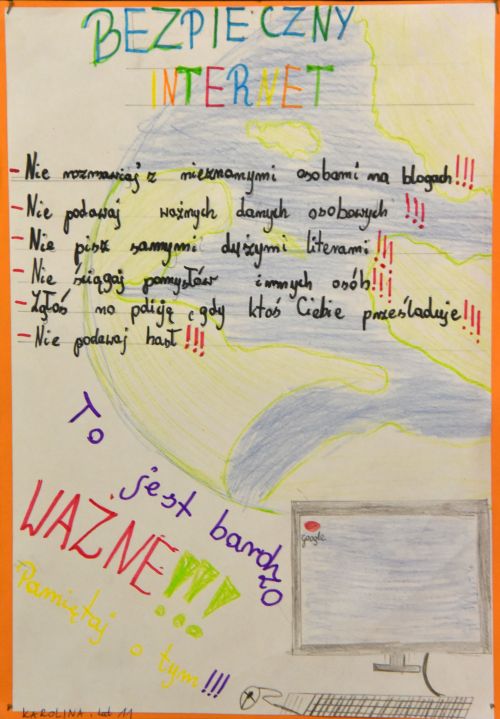 BEZPIECZNY
INTERNET
- Nie rozmawiaj z nieznanymi osobami na blogach!!!
- Nie podawaj ważnych danych osobowych !!!
- Nie pisz samymi dużymi literami!!!
- Nie ściągaj pomysłów innych osób!!!
- Zgłoś na policję gdy ktoś Ciebie prześladuje!!!
- Nie podawaj haseł!!!
To
jest bardzo
WAŻNE!!!
Pamiętaj o tym!!!
google
KAROLINA, lat 11